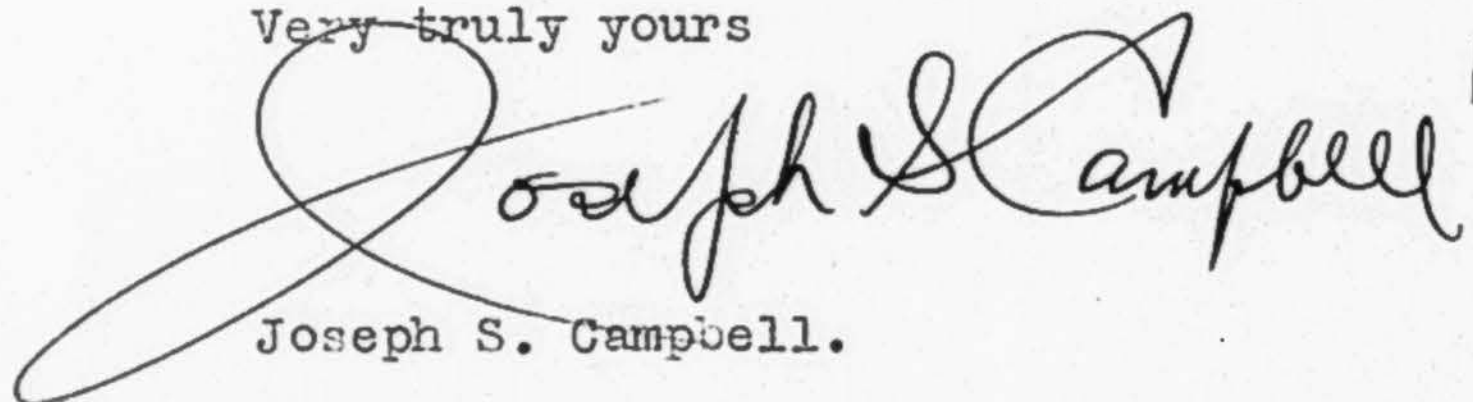 Very truly yours
Joseph S Campbell
Joseph S. Campbell.